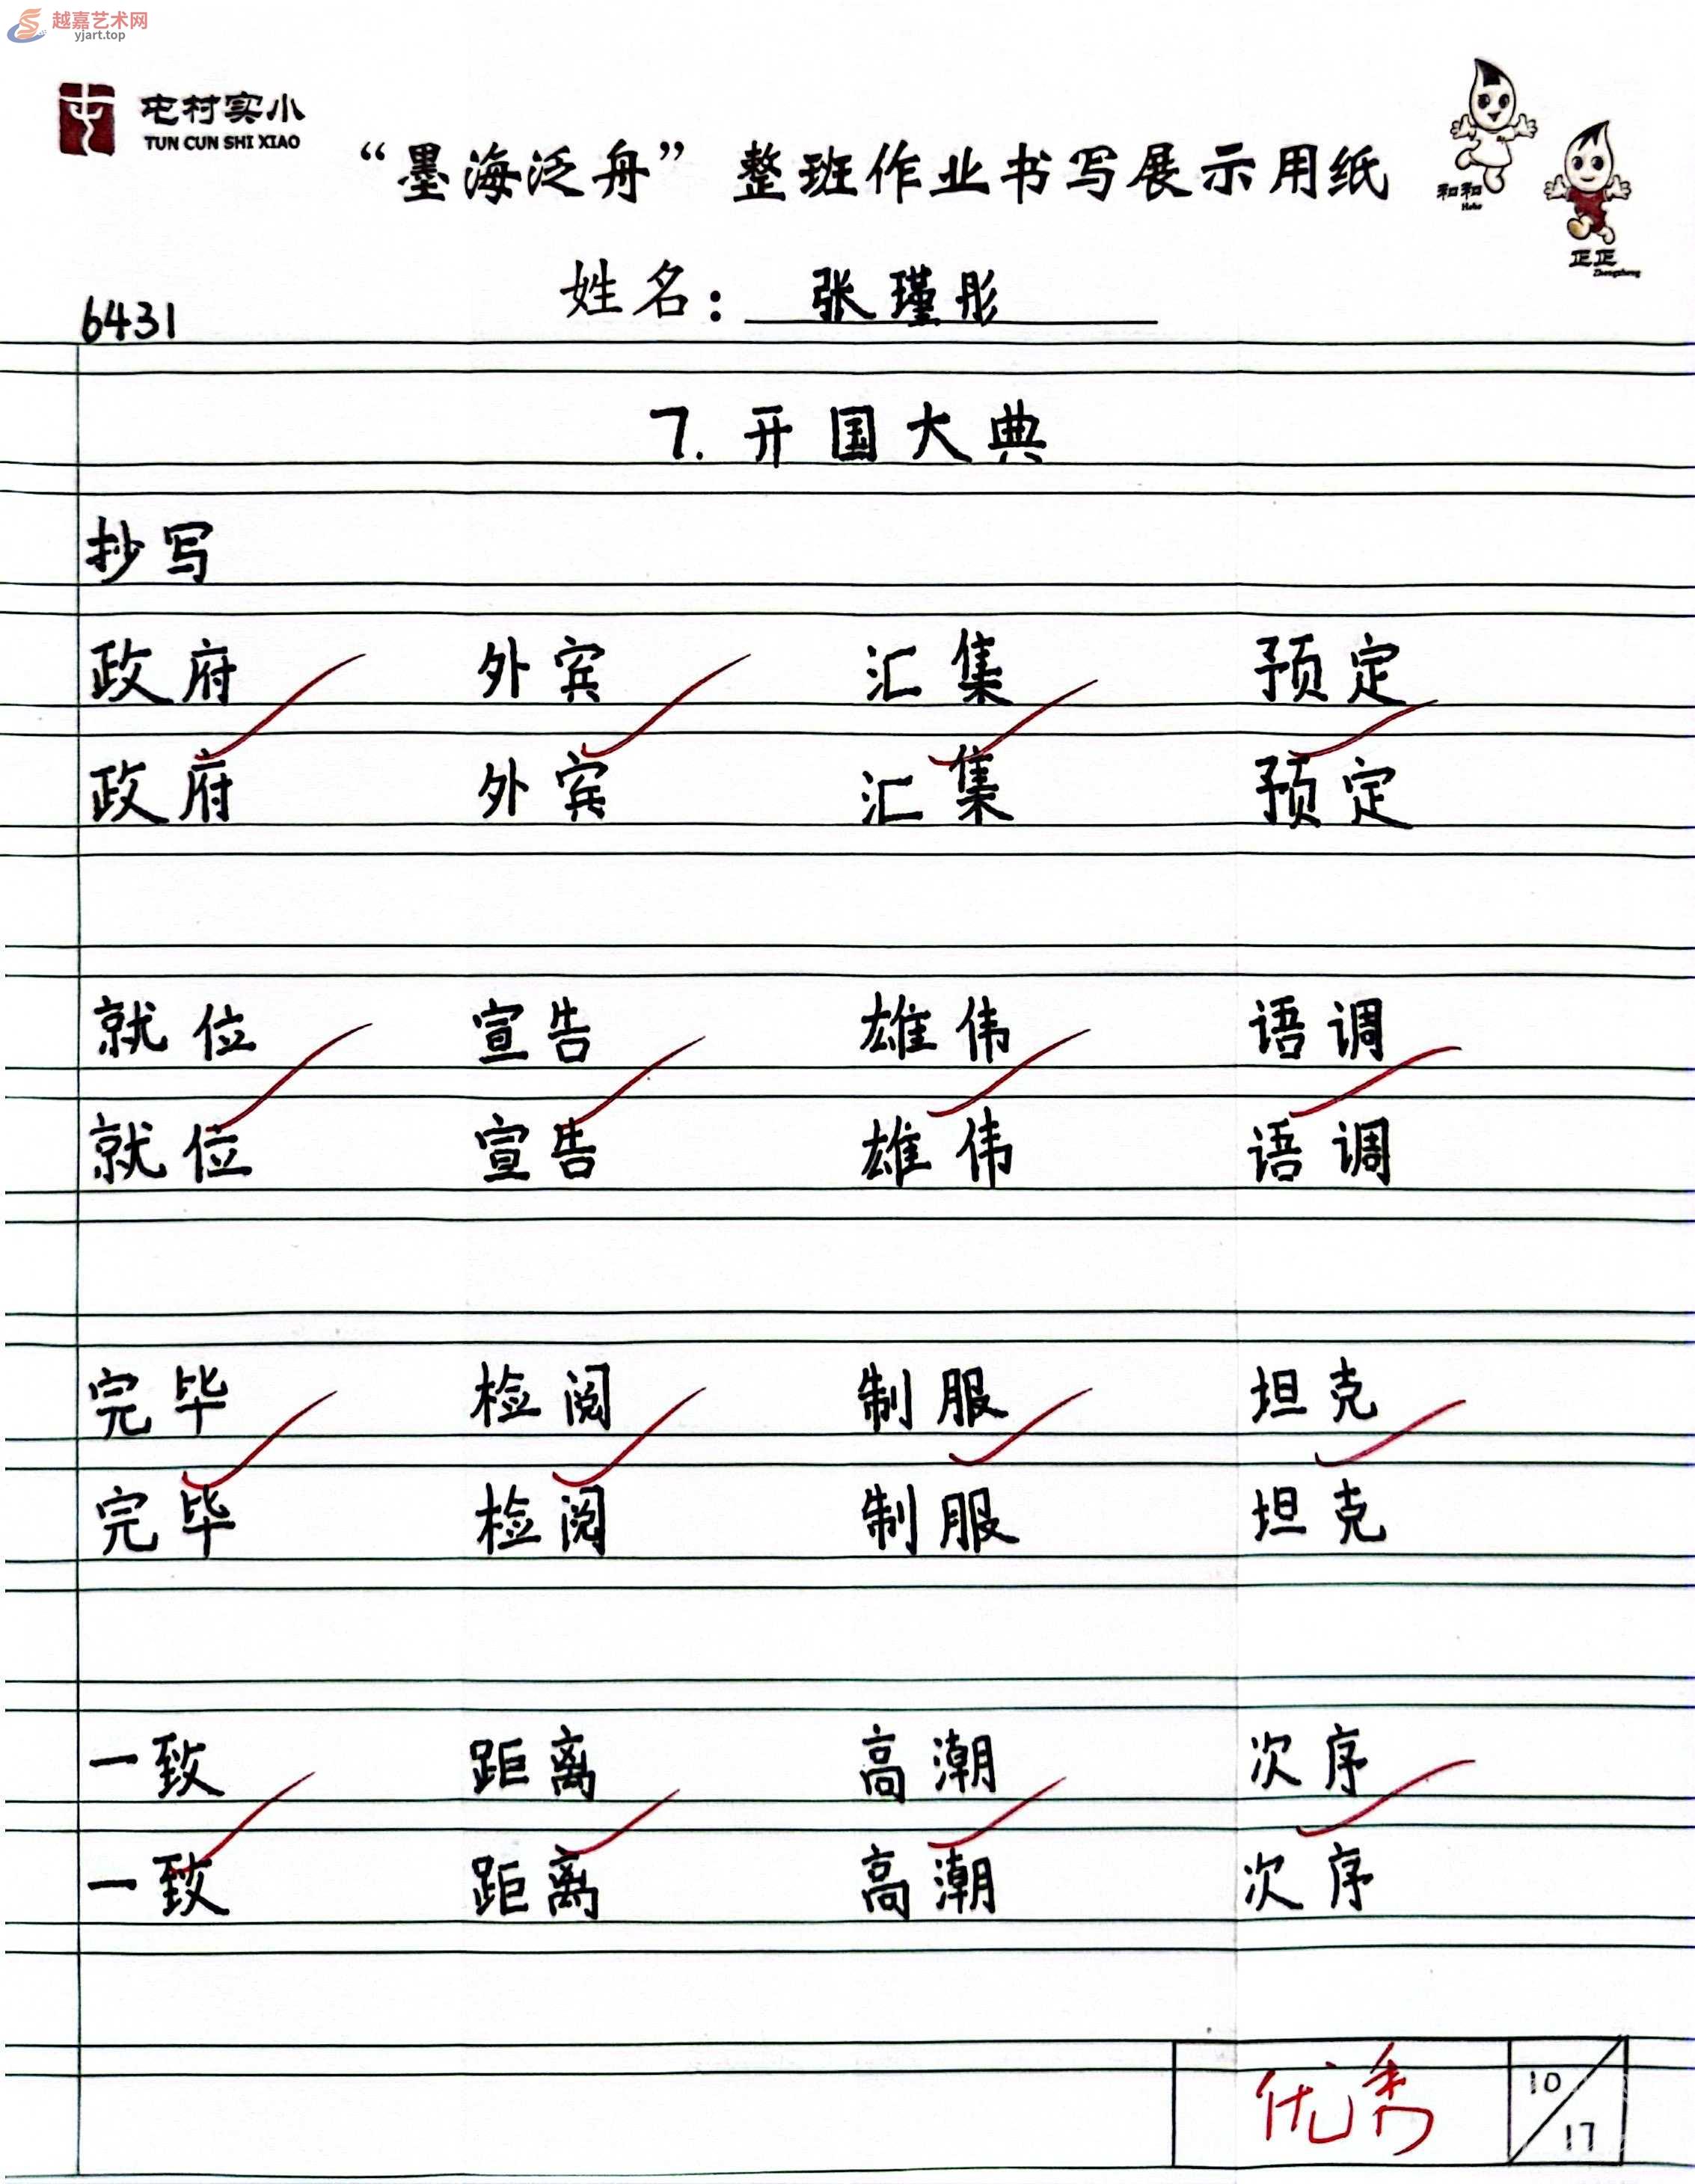 越嘉艺术网
yjart.top
屯村实小
TUN CUN SHI XIAO
“墨海泛舟”整班作业书写展示用纸
和和
Hehe
正正
Zhengzheng
姓名：张瑾彤
6431
7. 开国大典
抄写
政府 外宾 汇集 预定
政府 外宾 汇集 预定
就位 宣告 雄伟 语调
就位 宣告 雄伟 语调
完毕 检阅 制服 坦克
完毕 检阅 制服 坦克
一致 距离 高潮 次序
一致 距离 高潮 次序
优秀 10/17